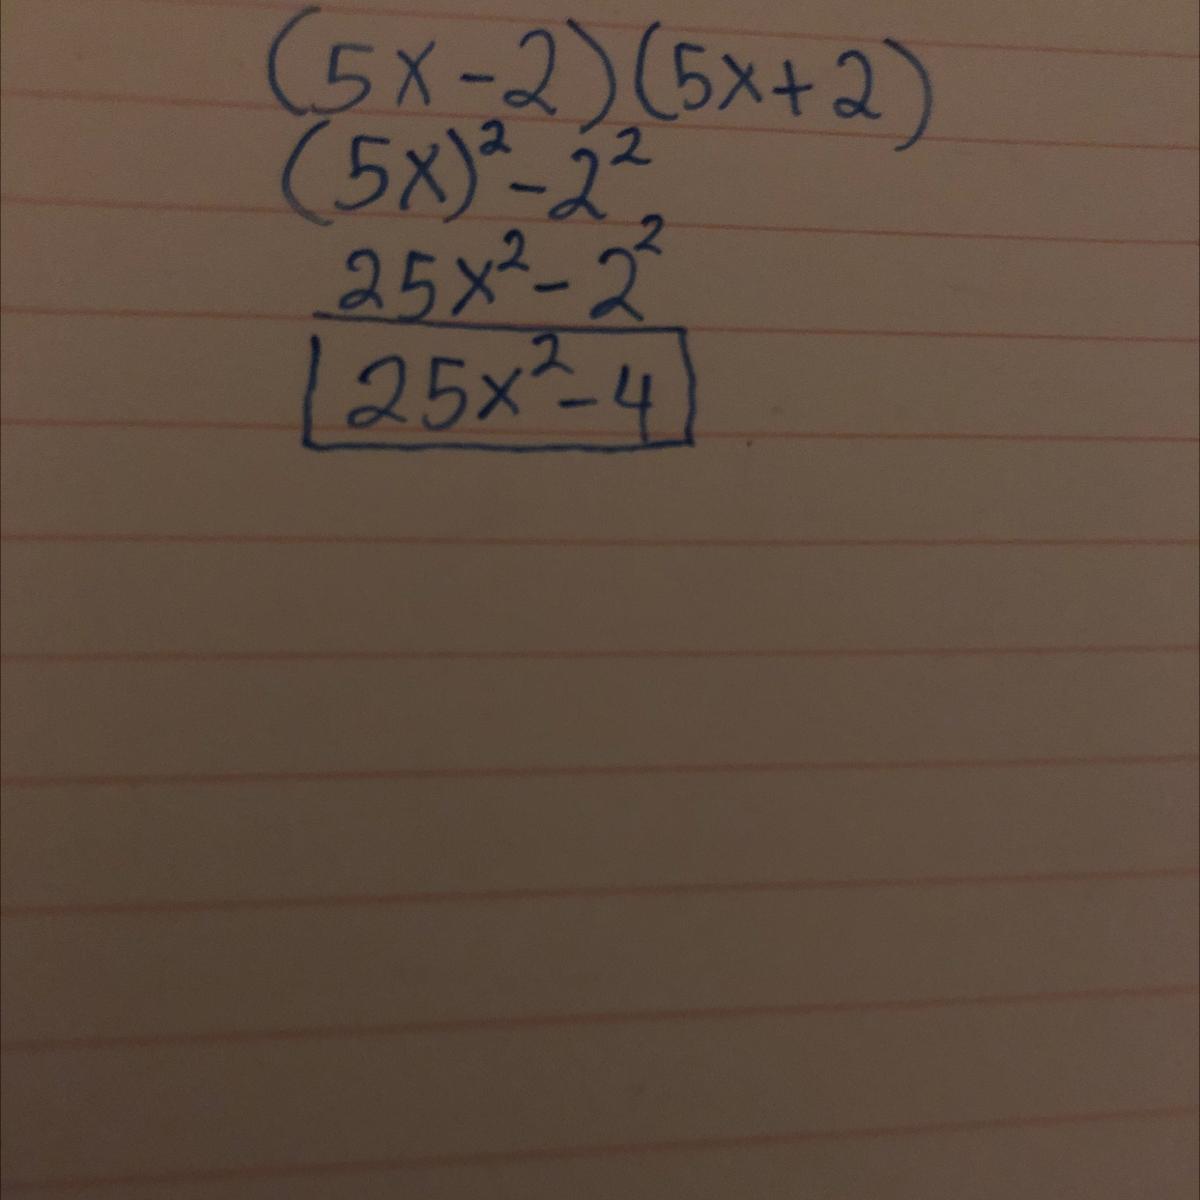 (5x-2)(5x+2)
(5x)²-2²
25x²-2²
25x²-4